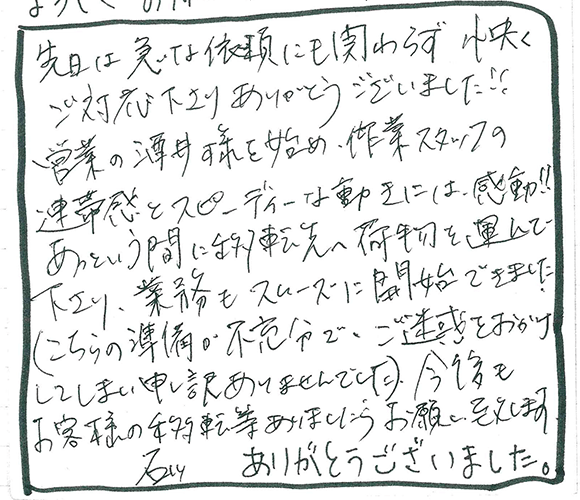 先日は急な依頼にも関わらず 快く
ご対応下さり ありがとうございました!!
営業の酒井様を始め、作業スタッフの
連帯感とスピーディーな動きには、感動!!
あっという間に移転先へ荷物を運んで
下さり、業務もスムーズに開始できました
(こちらの準備が不充分で、ご迷惑をおかけ
してしまい申し訳ありませんでした)。今後も
お客様の移転等ありましたらお願い致します
ありがとうございました。